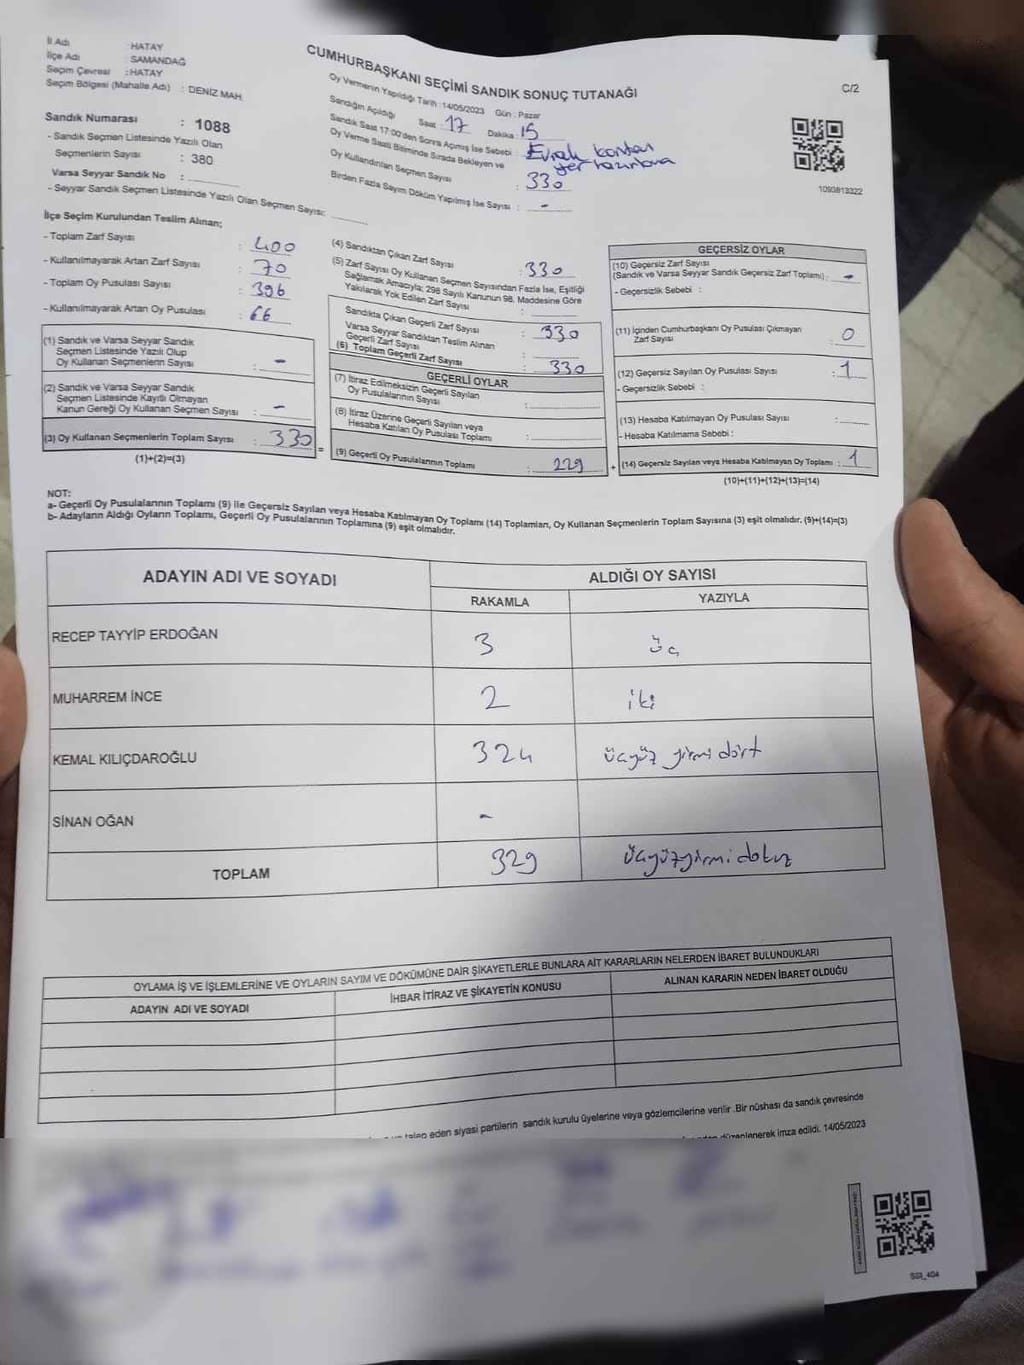 İl Adı : HATAY
İlçe Adı : SAMANDAĞ
Seçim Çevresi : HATAY
Seçim Bölgesi (Mahalle Adı) : DENİZ MAH.
CUMHURBAŞKANI SEÇİMİ SANDIK SONUÇ TUTANAĞI
C/2
Oy Vermenin Yapıldığı Tarih : 14/05/2023 Gün : Pazar
Sandığın Açıldığı Saat : 17 Dakika : 15
Sandık Saat 17:00'den Sonra Açımış İse Sebebi : Evrak
Oy Verme Saati Bitiminde Sırada Bekleyen ve
Oy Kullandırılan Seçmen Sayısı : 330
Birden Fazla Sayım Döküm Yapılmış İse Sayısı : -
1090813322
Sandık Numarası : 1088
- Sandık Seçmen Listesinde Yazılı Olan
Seçmenlerin Sayısı : 380
Varsa Seyyar Sandık No :
- Seyyar Sandık Seçmen Listesinde Yazılı Olan Seçmen Sayısı:
İlçe Seçim Kurulundan Teslim Alınan;
- Toplam Zarf Sayısı : 400
- Kullanılmayarak Artan Zarf Sayısı : 70
- Toplam Oy Pusulası Sayısı : 396
- Kullanılmayarak Artan Oy Pusulası : 66
(1) Sandık ve Varsa Seyyar Sandık
Seçmen Listesinde Yazılı Olup
Oy Kullanan Seçmenlerin Sayısı : -
(2) Sandık ve Varsa Seyyar Sandık
Seçmen Listesinde Kayıtlı Olmayan
Kanun Gereği Oy Kullanan Seçmen Sayısı : -
(3) Oy Kullanan Seçmenlerin Toplam Sayısı : 330
(1)+(2)=(3)
(4) Sandıktan Çıkan Zarf Sayısı : 330
(5) Zarf Sayısı Oy Kullanan Seçmen Sayısından Fazla İse, Eşitliği
Sağlamak Amacıyla; 298 Sayılı Kanunun 98. Maddesine Göre
Yakılarak Yok Edilen Zarf Sayısı :
Sandıkta Çıkan Geçerli Zarf Sayısı : 330
Varsa Seyyar Sandıktan Teslim Alınan
Geçerli Zarf Sayısı :
(6) Toplam Geçerli Zarf Sayısı : 330
GEÇERLİ OYLAR
(7) İtiraz Edilmeksizin Geçerli Sayılan
Oy Pusulalarının Sayısı :
(8) İtiraz Üzerine Geçerli Sayılan veya
Hesaba Katılan Oy Pusulası Toplamı :
(9) Geçerli Oy Pusulalarının Toplamı : 229
=
+
GEÇERSİZ OYLAR
(10) Geçersiz Zarf Sayısı
(Sandık ve Varsa Seyyar Sandık Geçersiz Zarf Toplamı) : -
- Geçersizlik Sebebi :
(11) İçinden Cumhurbaşkanı Oy Pusulası Çıkmayan
Zarf Sayısı : 0
(12) Geçersiz Sayılan Oy Pusulası Sayısı : 1
- Geçersizlik Sebebi :
(13) Hesaba Katılmayan Oy Pusulası Sayısı :
- Hesaba Katılmama Sebebi :
(14) Geçersiz Sayılan veya Hesaba Katılmayan Oy Toplamı : 1
(10)+(11)+(12)+(13)=(14)
NOT:
a- Geçerli Oy Pusulalarının Toplamı (9) ile Geçersiz Sayılan veya Hesaba Katılmayan Oy Toplamı (14) Toplamları, Oy Kullanan Seçmenlerin Toplam Sayısına (3) eşit olmalıdır. (9)+(14)=(3)
b- Adayların Aldığı Oyların Toplamı, Geçerli Oy Pusulalarının Toplamına (9) eşit olmalıdır.
ADAYIN ADI VE SOYADI ALDIĞI OY SAYISI
RAKAMLA YAZIYLA
RECEP TAYYİP ERDOĞAN 3 üç
MUHARREM İNCE 2 iki
KEMAL KILIÇDAROĞLU 324 üçyüz yirmi dört
SİNAN OĞAN -
TOPLAM 329 üçyüzyirmi dokuz
OYLAMA İŞ VE İŞLEMLERİNE VE OYLARIN SAYIM VE DÖKÜMÜNE DAİR ŞİKAYETLERLE BUNLARA AİT KARARLARIN NELERDEN İBARET BULUNDUKLARI
ADAYIN ADI VE SOYADI İHBAR İTİRAZ VE ŞİKAYETİN KONUSU ALINAN KARARIN NEDEN İBARET OLDUĞU
talep eden siyasi partilerin sandık kurulu üyelerine veya gözlemcilerine verilir .Bir nüshası da sandık çevresinde
düzenlenerek imza edildi. 14/05/2023